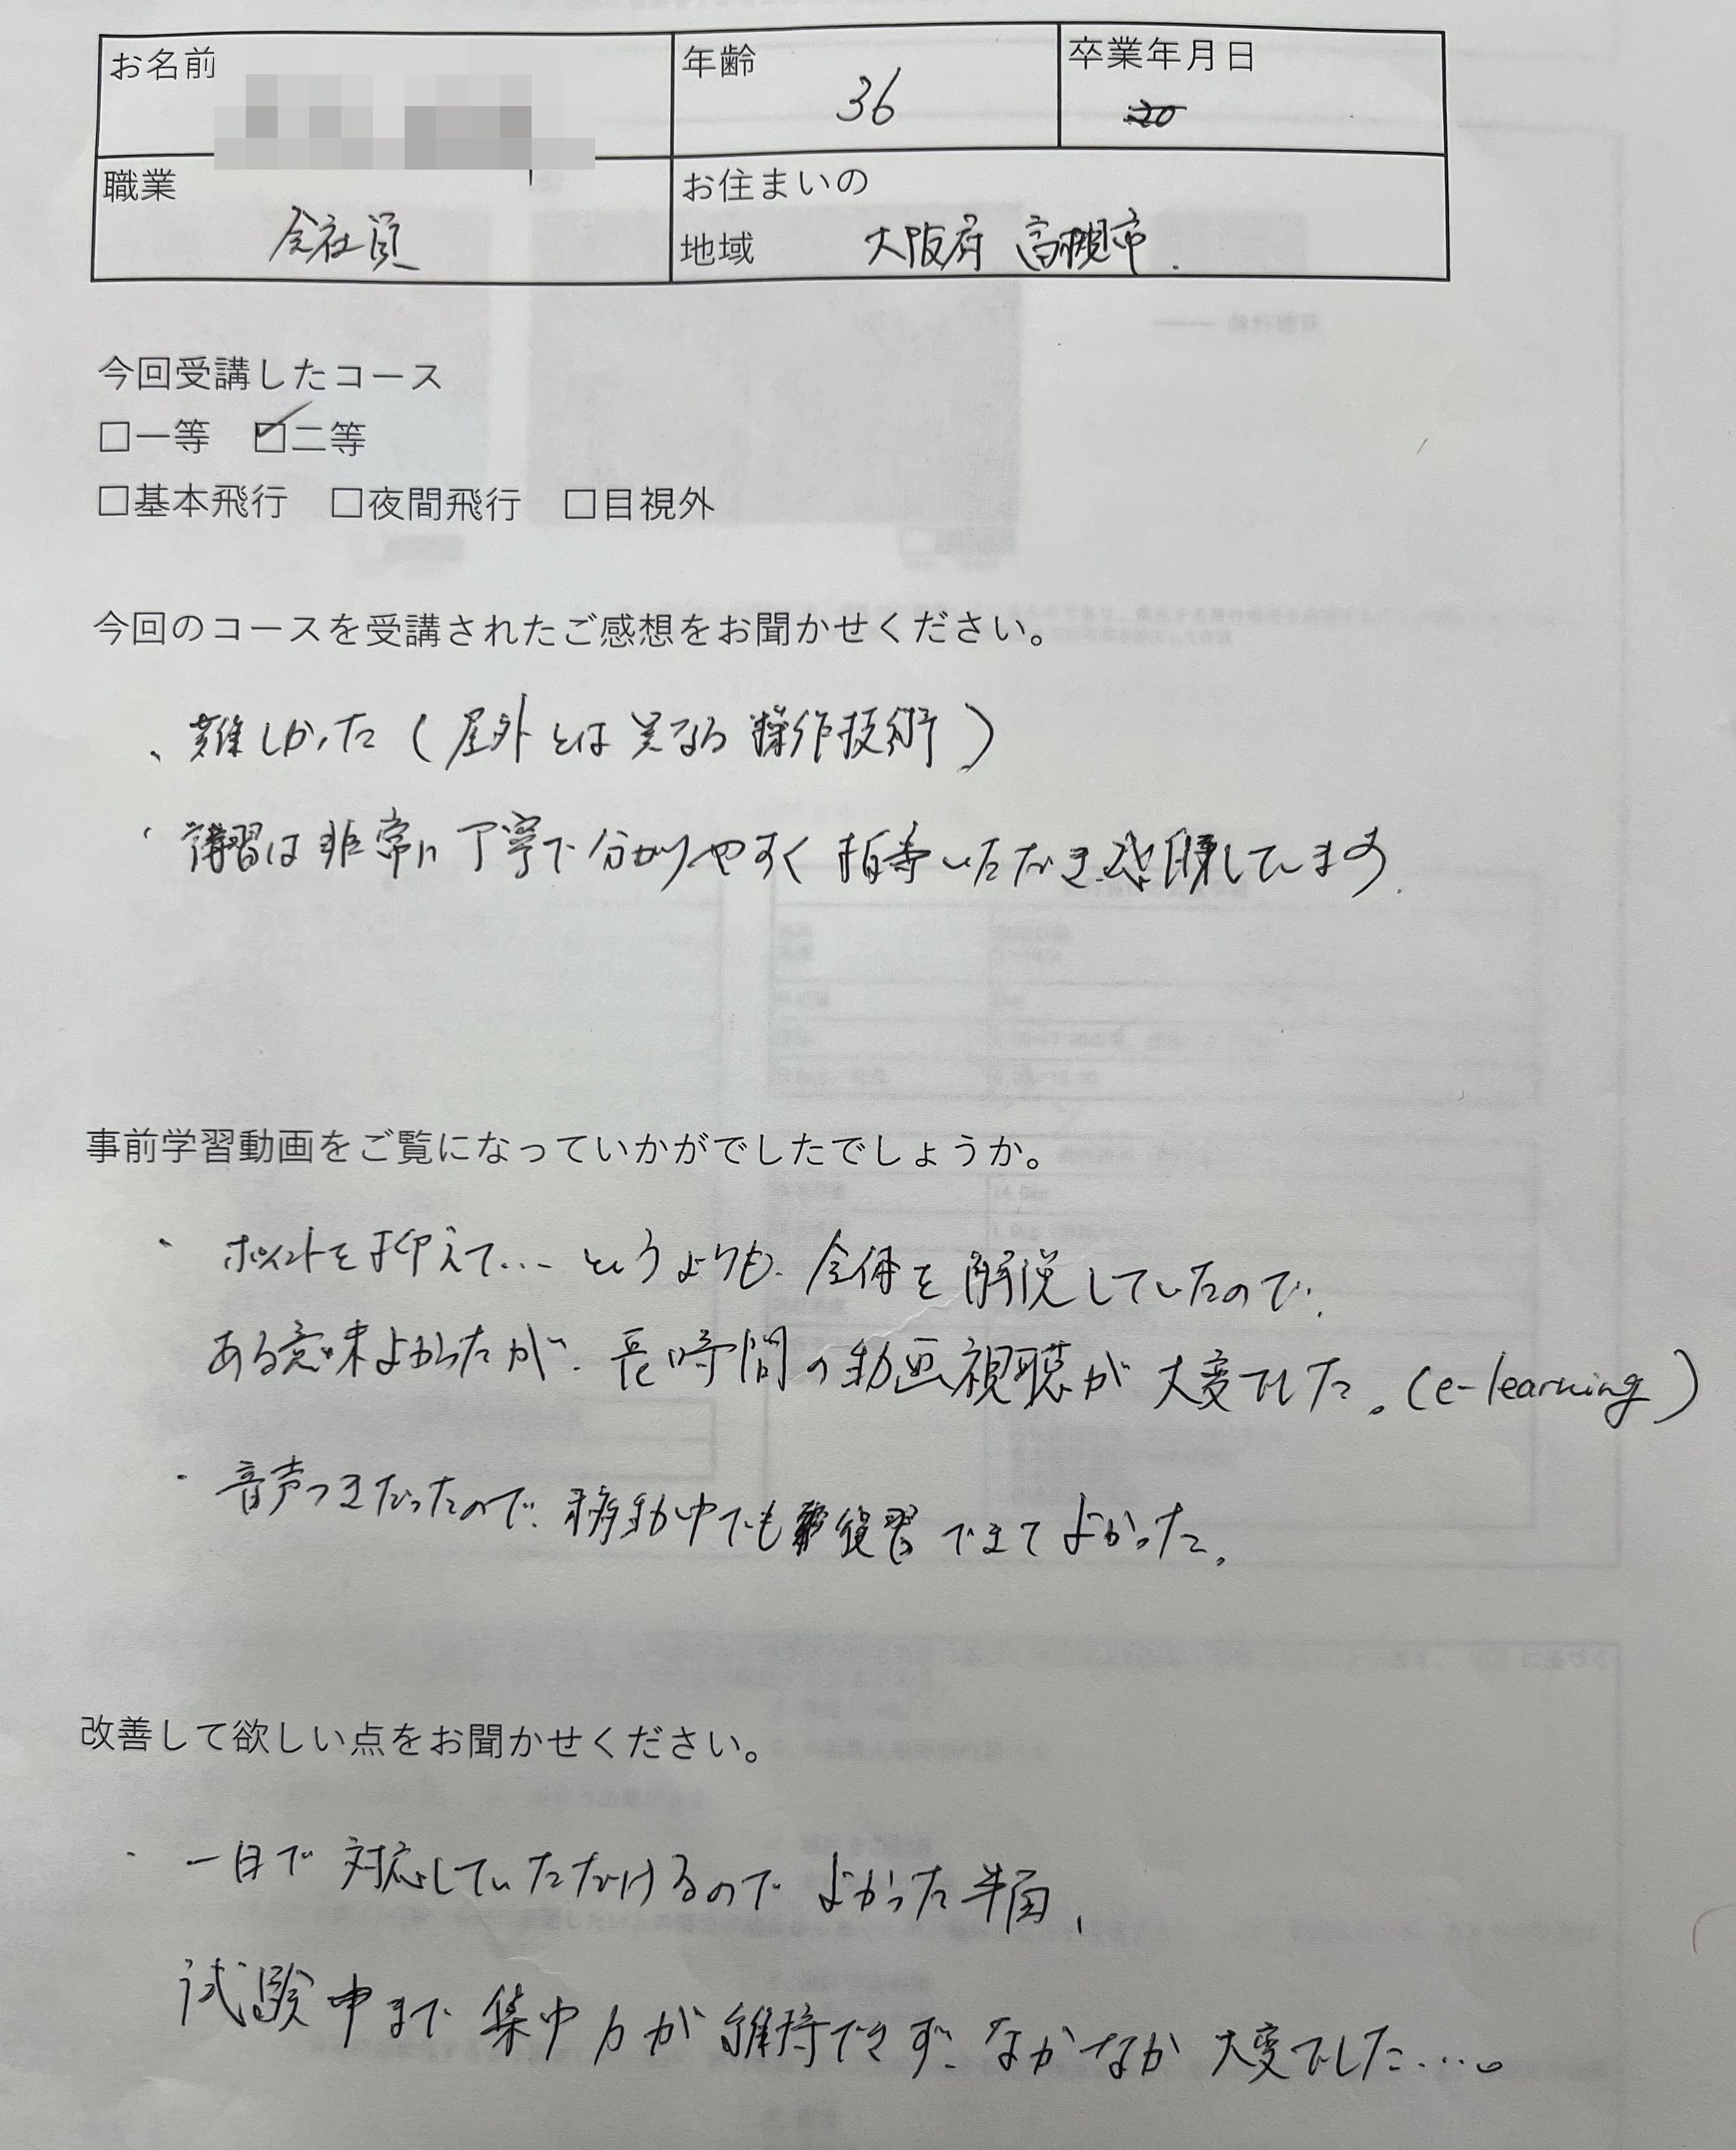 お名前
年齢
36
卒業年月日
職業
会社員
お住まいの
地域
大阪府 高槻市.
今回受講したコース
□一等 ☑二等
□基本飛行 □夜間飛行 □目視外
今回のコースを受講されたご感想をお聞かせください。
、難しかった(屋外とは異なる操作技術)
・講習は非常に丁寧で分かりやすく指導いただき感謝しています.
事前学習動画をご覧になっていかがでしたでしょうか。
・ポイントを抑えて...というよりも、全体を解説していたので、
ある意味よかったが、長時間の動画視聴が大変でした。(e-learning)
・音声つきだったので、移動中でも復習できてよかった。
改善して欲しい点をお聞かせください。
・一日で対応していただけるのでよかった半面、
試験中まで集中力が維持できず、なかなか大変でした....。